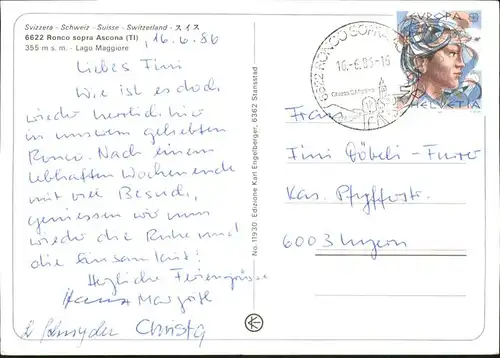 Svizzera - Schweiz - Suisse - Switzerland - 717
6622 Ronco sopra Ascona (TI)
355 m s. m. - Lago Maggiore
16.6.86
Liebes Fini
Wie ist es doch
wieder herrlich hier
in unserem geliebten
Ronco. Nach einem
lebhaften Wochenende
mit viel Besuch,
geniessen wir nun
wieder die Ruhe und
die Einsamkeit!
Herzliche Feriengrüsse
Hans Margrith
Christa
No. 11930 Edizione Karl Engelberger, 6362 Stansstad
6622 RONCO SOPRA
16.-6.86-16
EUROPA
HELVETIA
Frau
Fini Döbeli-Furrer
Kas. Pfyfferstr.
6003 Luzern